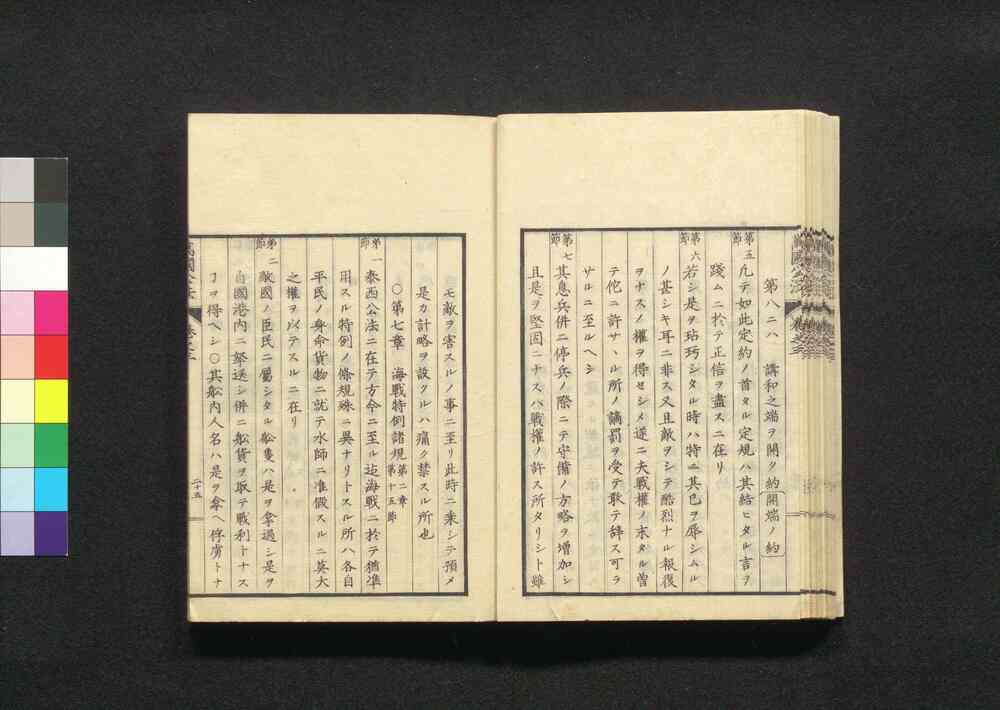 第八二八　講和之端ヲ開ク約 開端ノ約
第五節 凡テ如此定約ノ首タル定規ハ其結ヒタル言ヲ
踐ムニ於テ正信ヲ盡スニ在リ
第六節 若シ是ヲ玷汚シタル時ハ特ニ其已ヲ辱シムル
ノ甚シキ耳ニ非ス又且敵ヲシテ酷烈ナル報復
ヲナスノ權ヲ得セシメ遂ニ夫戰權ノ末タル曽
テ佗ニ許サヽル所ノ謫罰ヲ受テ敢テ辞ス可ラ
サルニ至ルヘシ
第七節 其息兵併ニ停兵ノ際ニテ守備ノ方略ヲ増加シ
且是ヲ堅固ニナスハ戰權ノ許ス所タリシト雖
萬國公法 卷之三
モ敵ヲ害スルノ事ニ至リ此時ニ乘シテ預メ
是カ計略ヲ設クルハ痛ク禁スル所也
〇第七章　海戰特例諸規 第二章第十五節
第一節 泰西公法ニ在テ方今ニ至ル迄海戰ニ於テ猶準
用スル特例ノ條規殊ニ異ナリトスル所ハ各自
平民ノ身命貨物ニ就テ水師ニ准假スルニ莫大
之權ヲ以テスルニ在リ
第二節 敵國ノ臣民ニ屬シタル舩隻ハ是ヲ拿過シ是ヲ
自國港内ニ拏送シ併ニ舩貨ヲ取テ戰利トナス
ヿヲ得ヘシ〇其舩内人名ハ是ヲ拿ヘ俘虜トナ
萬國公法 卷之三
二十五